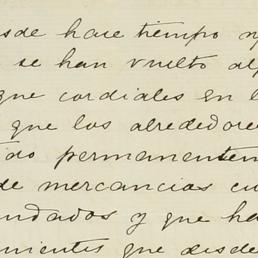 esde hace tiempo n
se han vuelto al
que cordiales en l
que los alrededore
ido permanentem
de mercancias cu
undados y que ha
mientes que desde